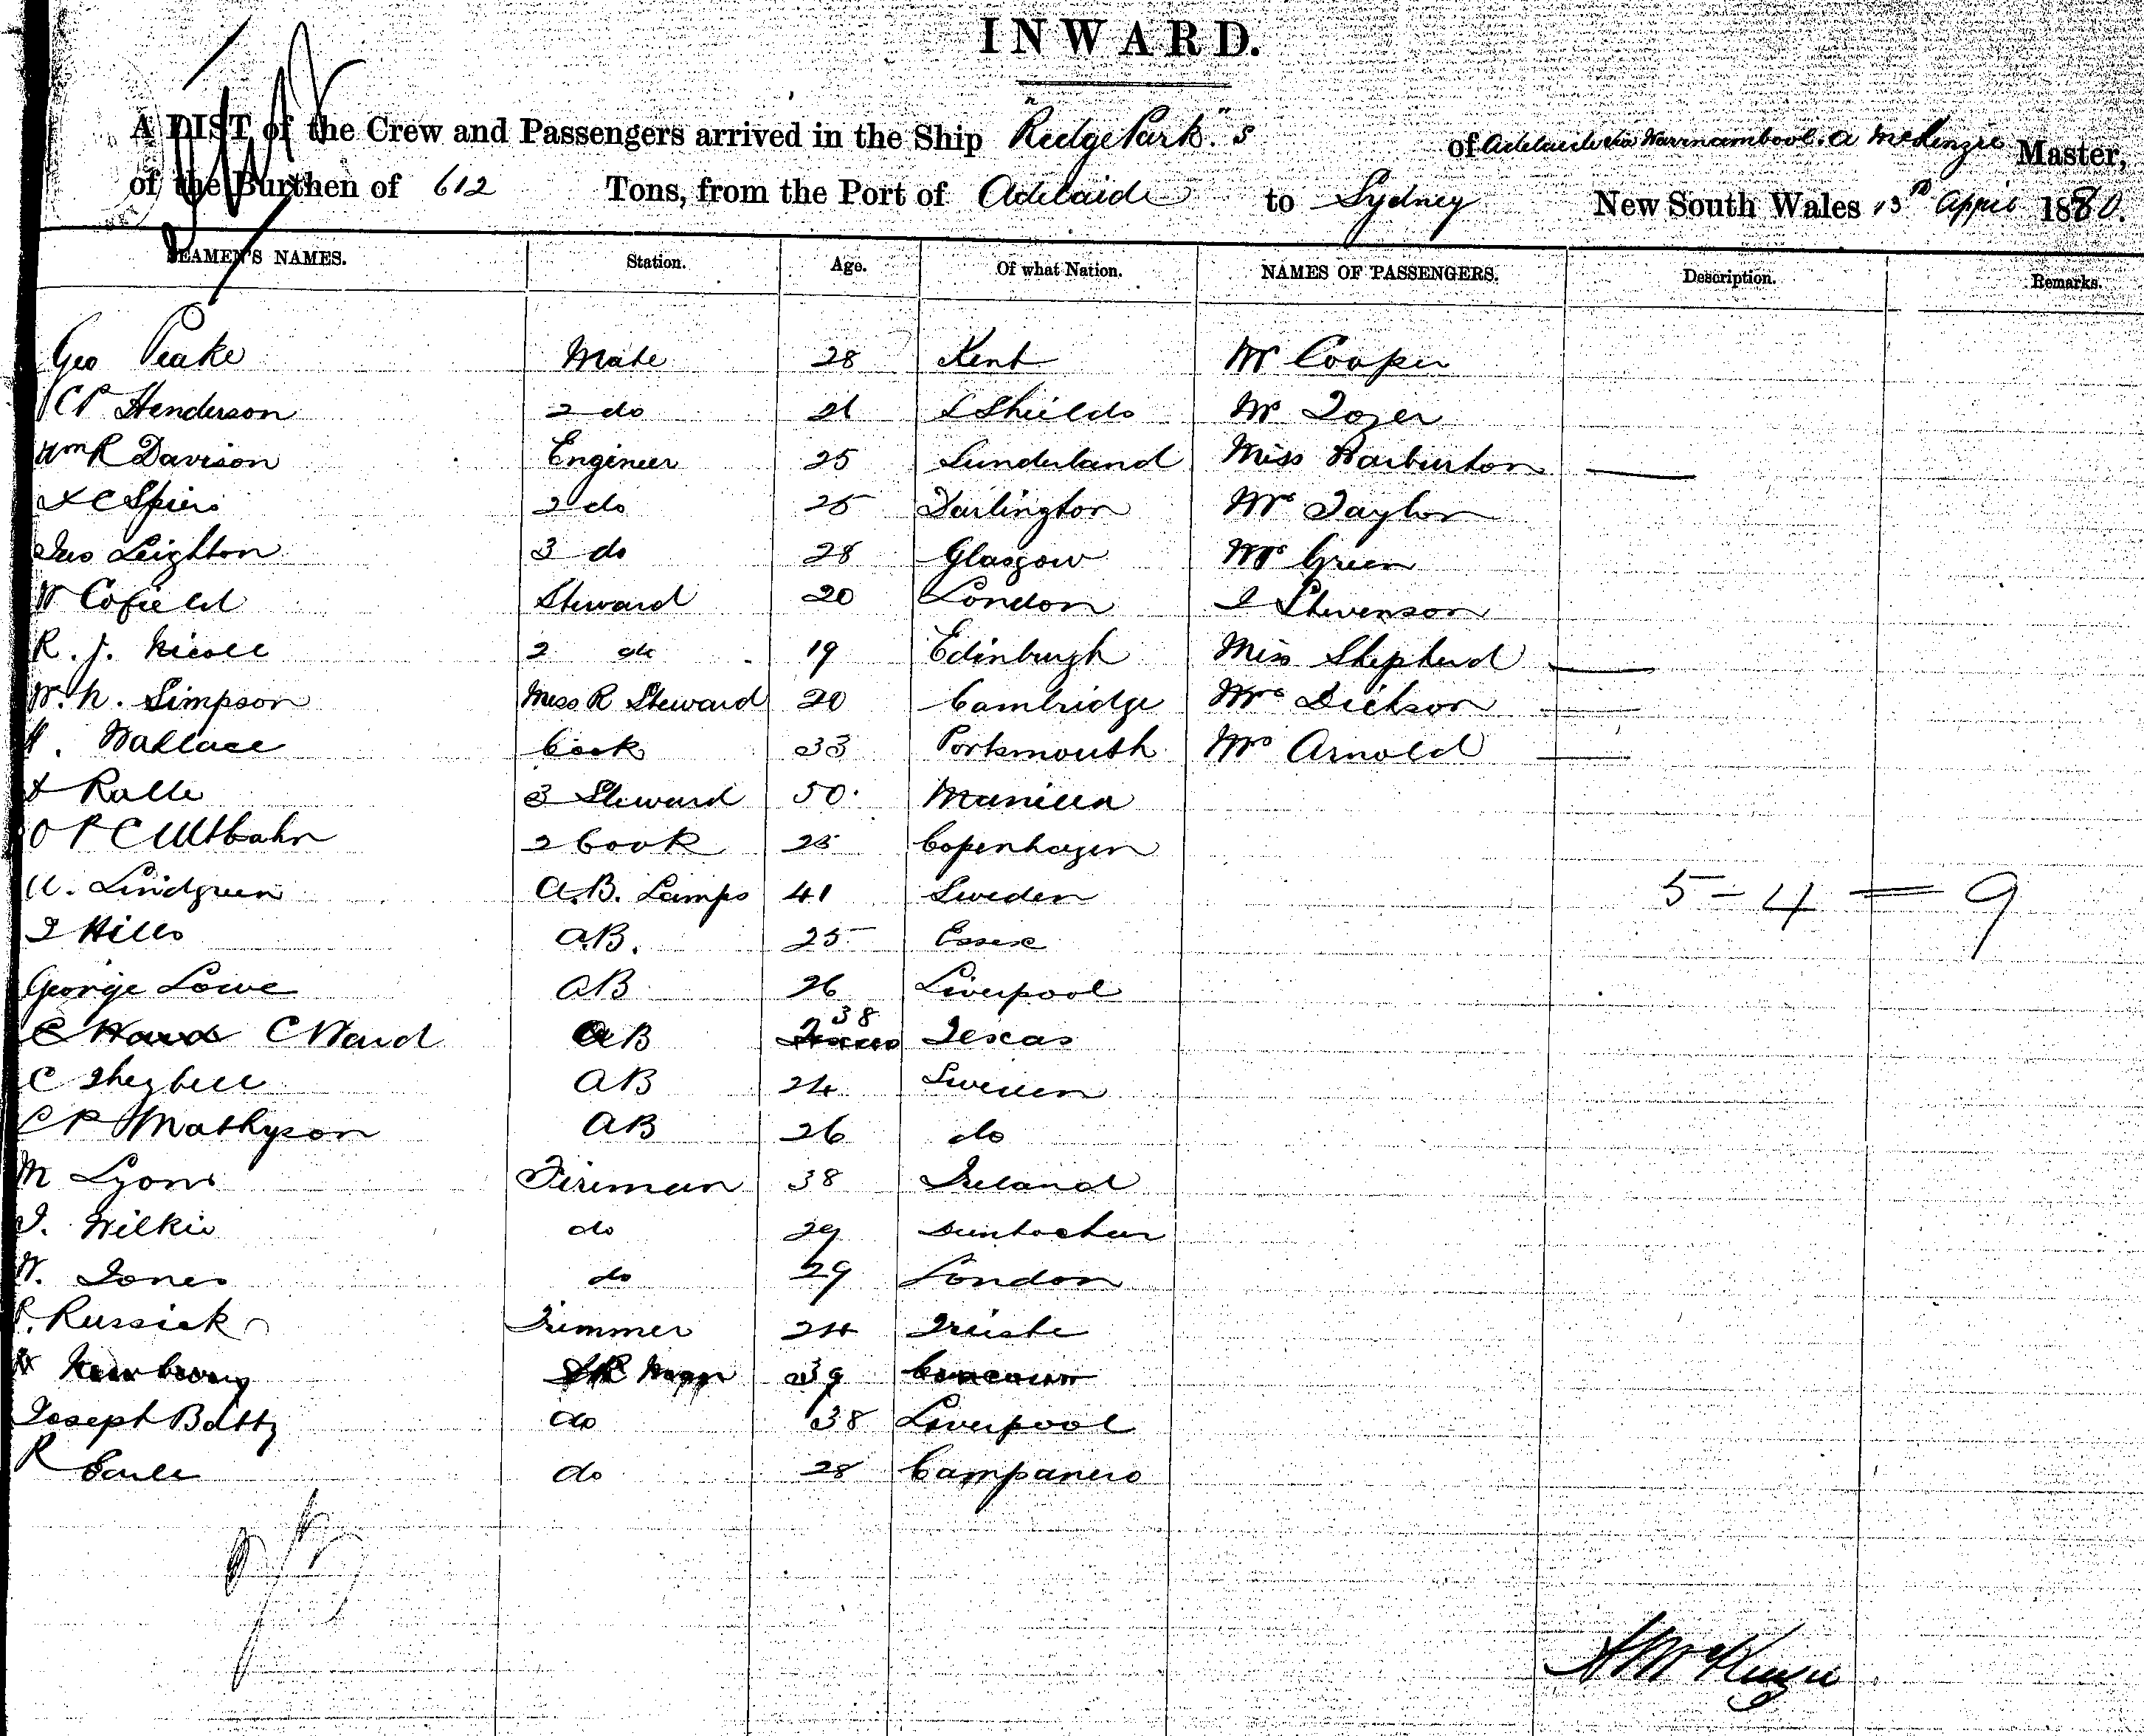 INWARD.
A LIST of the Crew and Passengers arrived in the Ship "Ridge Park" S of Adelaide via Warrnambool. A McKenzie Master,
of the Burthen of 612 Tons, from the Port of Adelaide to Sydney New South Wales 13th April 1880.
SEAMEN'S NAMES. Station. Age. Of what Nation. NAMES OF PASSENGERS. Description. Remarks.
Geo Peake Mate 28 Kent Mr Cooper
C P Henderson 2 do 21 S Shields Mr Tozer
Wm R Davison Engineer 25 Sunderland Miss Warburton —
C Spiers 2 do 25 Darlington Mrs Taylor
Jas Leighton 3 do 28 Glasgow Mrs Green
W Cofield Steward 20 London J Stevenson
R. J. Nicoll 2 do 19 Edinburgh Miss Shepherd —
W. N. Simpson Mess R Steward 20 Cambridge Mrs Dickson —
H. Wallace Cook 33 Portsmouth Mrs Arnold —
Ralle 3 Steward 50 Manilla
O P C 2 Cook 25 Copenhagen
A. Lindgreen A.B. Lamps 41 Sweden 5 - 4 = 9
J Hills A.B. 25 Essex
George Lowe AB 26 Liverpool
C Ward C Ward AB 38 Texas Texas
C AB 24 Sweden
C P Mathyson AB 26 do
M Lyons Fireman 38 Ireland
J. Wilkie do 29
W. Jones do 29 London
P. Russick Trimmer 24 Trieste
39
Joseph Batty do 38 Liverpool
R do 28 Campanero
A McKenzie